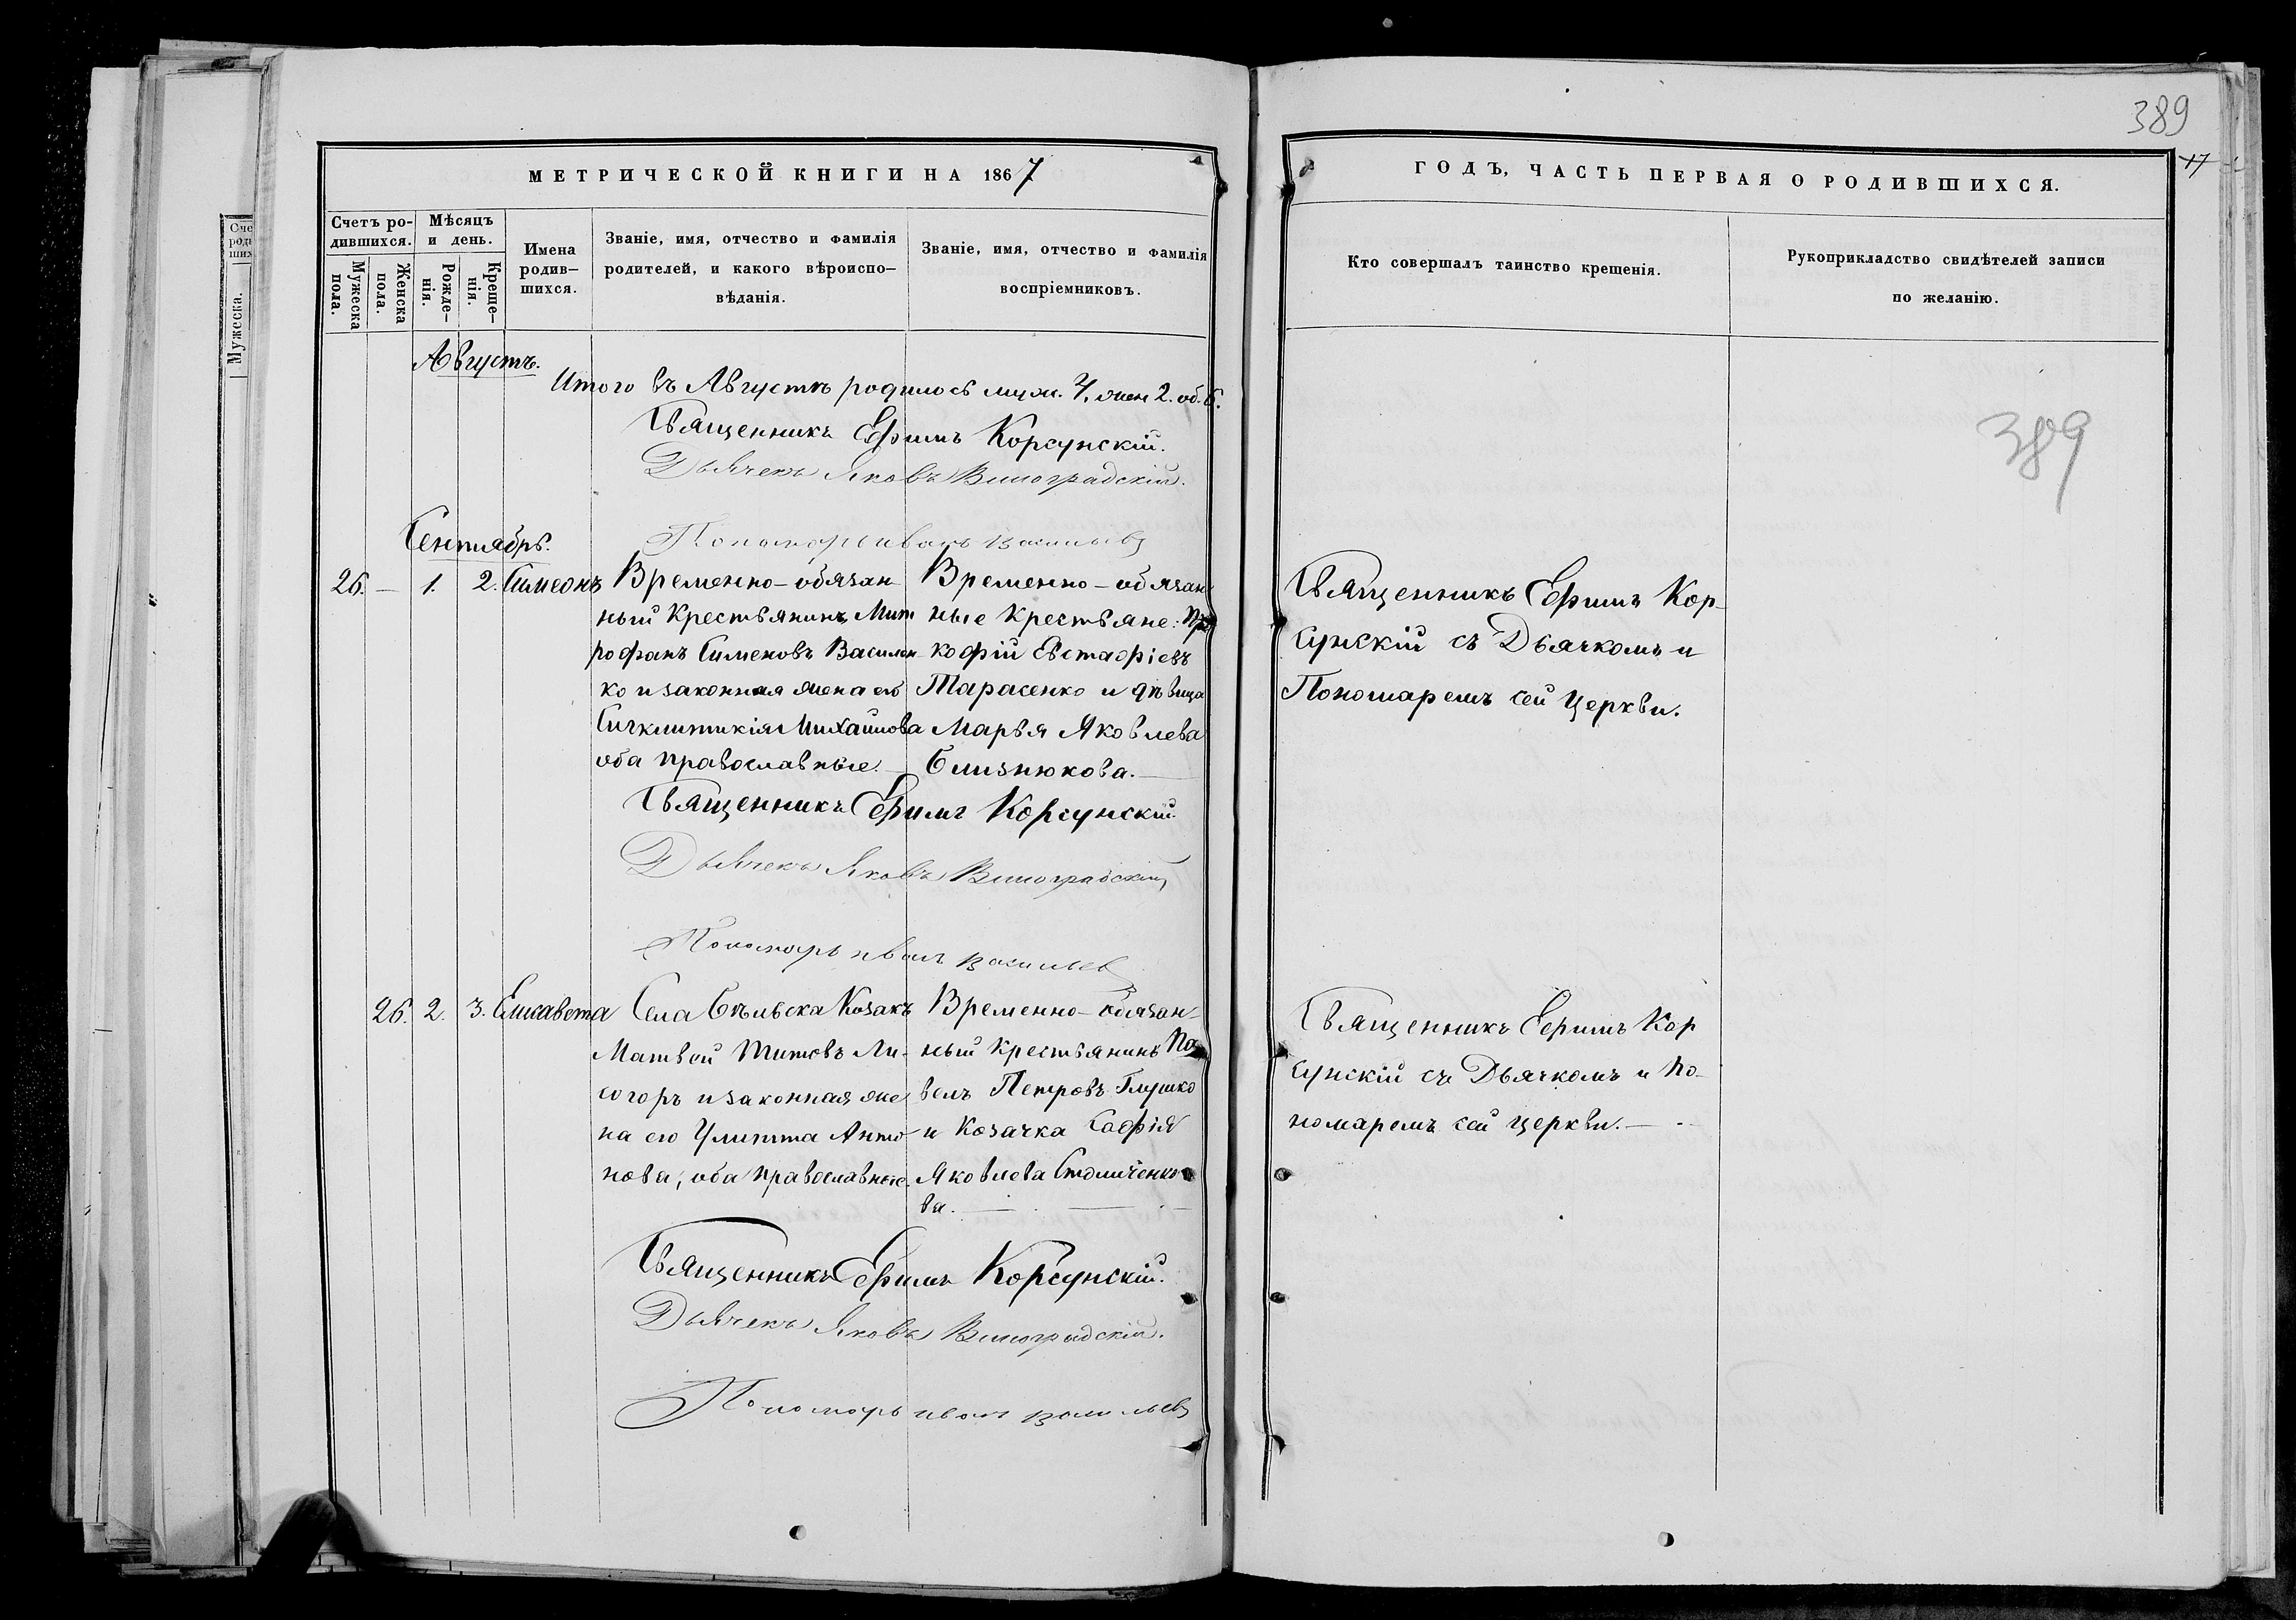 389
МЕТРИЧЕСКОЙ КНИГИ НА 1867
ГОДЪ, ЧАСТЬ ПЕРВАЯ О РОДИВШИХСЯ.
17
Счетъ ро-
дившихся.
Мужеска
пола.
Женска
пола.
Мѣсяцъ
и день.
Рожде-
нія.
Креще-
нія.
Имена
родив-
шихся.
Званіе, имя, отчество и фамилія
родителей, и какого вѣроиспо-
вѣданія.
Званіе, имя, отчество и фамилія
воспріемниковъ.
Кто совершалъ таинство крещенія.
Рукоприкладство свидѣтелей записи
по желанію.
Мужеска.
389
Августъ.
Итого въ Августѣ родилось муж. 4, жен 2. об. 6.
Священникъ Ефимъ Корсунскій.
Дьячекъ Яковъ Виноградскій.
Пономарь иванъ васильевъ
Сентябрь.
26. — 1. 2. Симеонъ
Временно-обязан-
ный Крестьянинъ Мит
рофанъ Сименовъ Василен-
ко и законная жена его
Синклитикія Михайлова
оба православные.
Временно-обязан-
ные Крестьяне: Про
кофій Евстафіевъ
Тарасенко и дѣвица
Марья Яковлева
Близнюкова.
Священникъ Ефимъ Кор-
сунскій съ Дьячкомъ и
Пономаремъ сей Церкви.
Священникъ Ефимъ Корсунскій
Дьячекъ Яковъ Виноградскій
Пономарь иванъ васильевъ
26. 2. 3. Елисавета
Села Бѣльска Козакъ
Матвей Титовъ Ли-
согоръ и законная же
на его Улитта Анто-
нова, оба православные.
Временно-обязан-
ный крестьянинъ Па
велъ Петровъ Глушко
и Козачка Софія
Яковлева Столиченко
ва.
Священникъ Ефимъ Кор
сунскій съ Дьячкомъ и По-
номаремъ сей церкви.
Священникъ Ефимъ Корсунскій.
Дьячекъ Яковъ Виноградскій.
Пономарь иванъ васильевъ